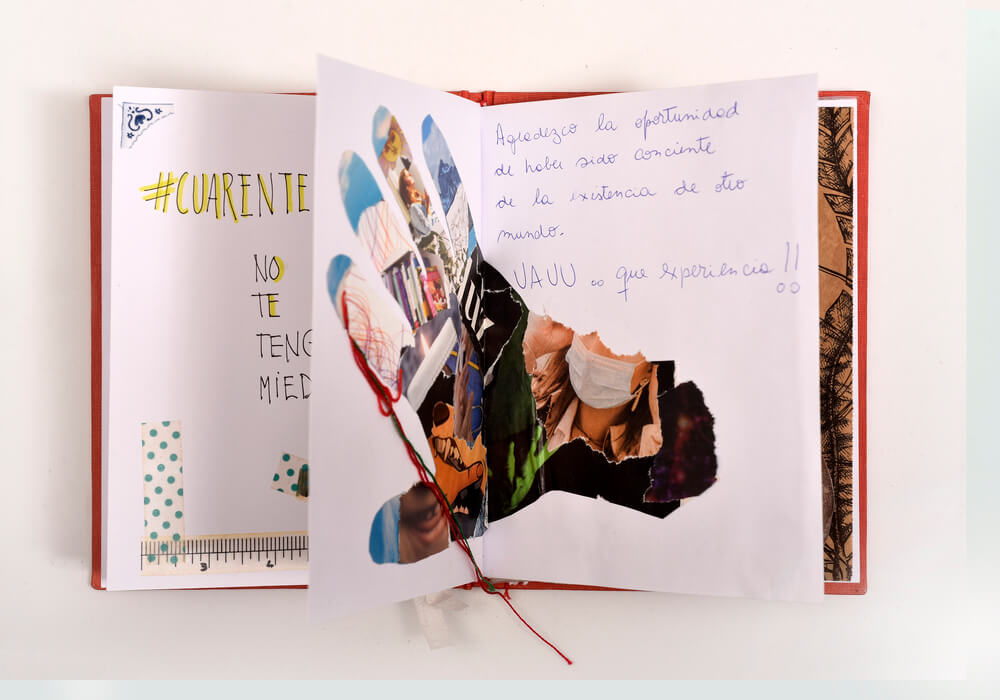 #CUARENTE
NO
TE
TENG
MIED
3 4
Agradezco la oportunidad
de haber sido conciente
de la existencia de otro
mundo.
UAUU .. que experiencia !!